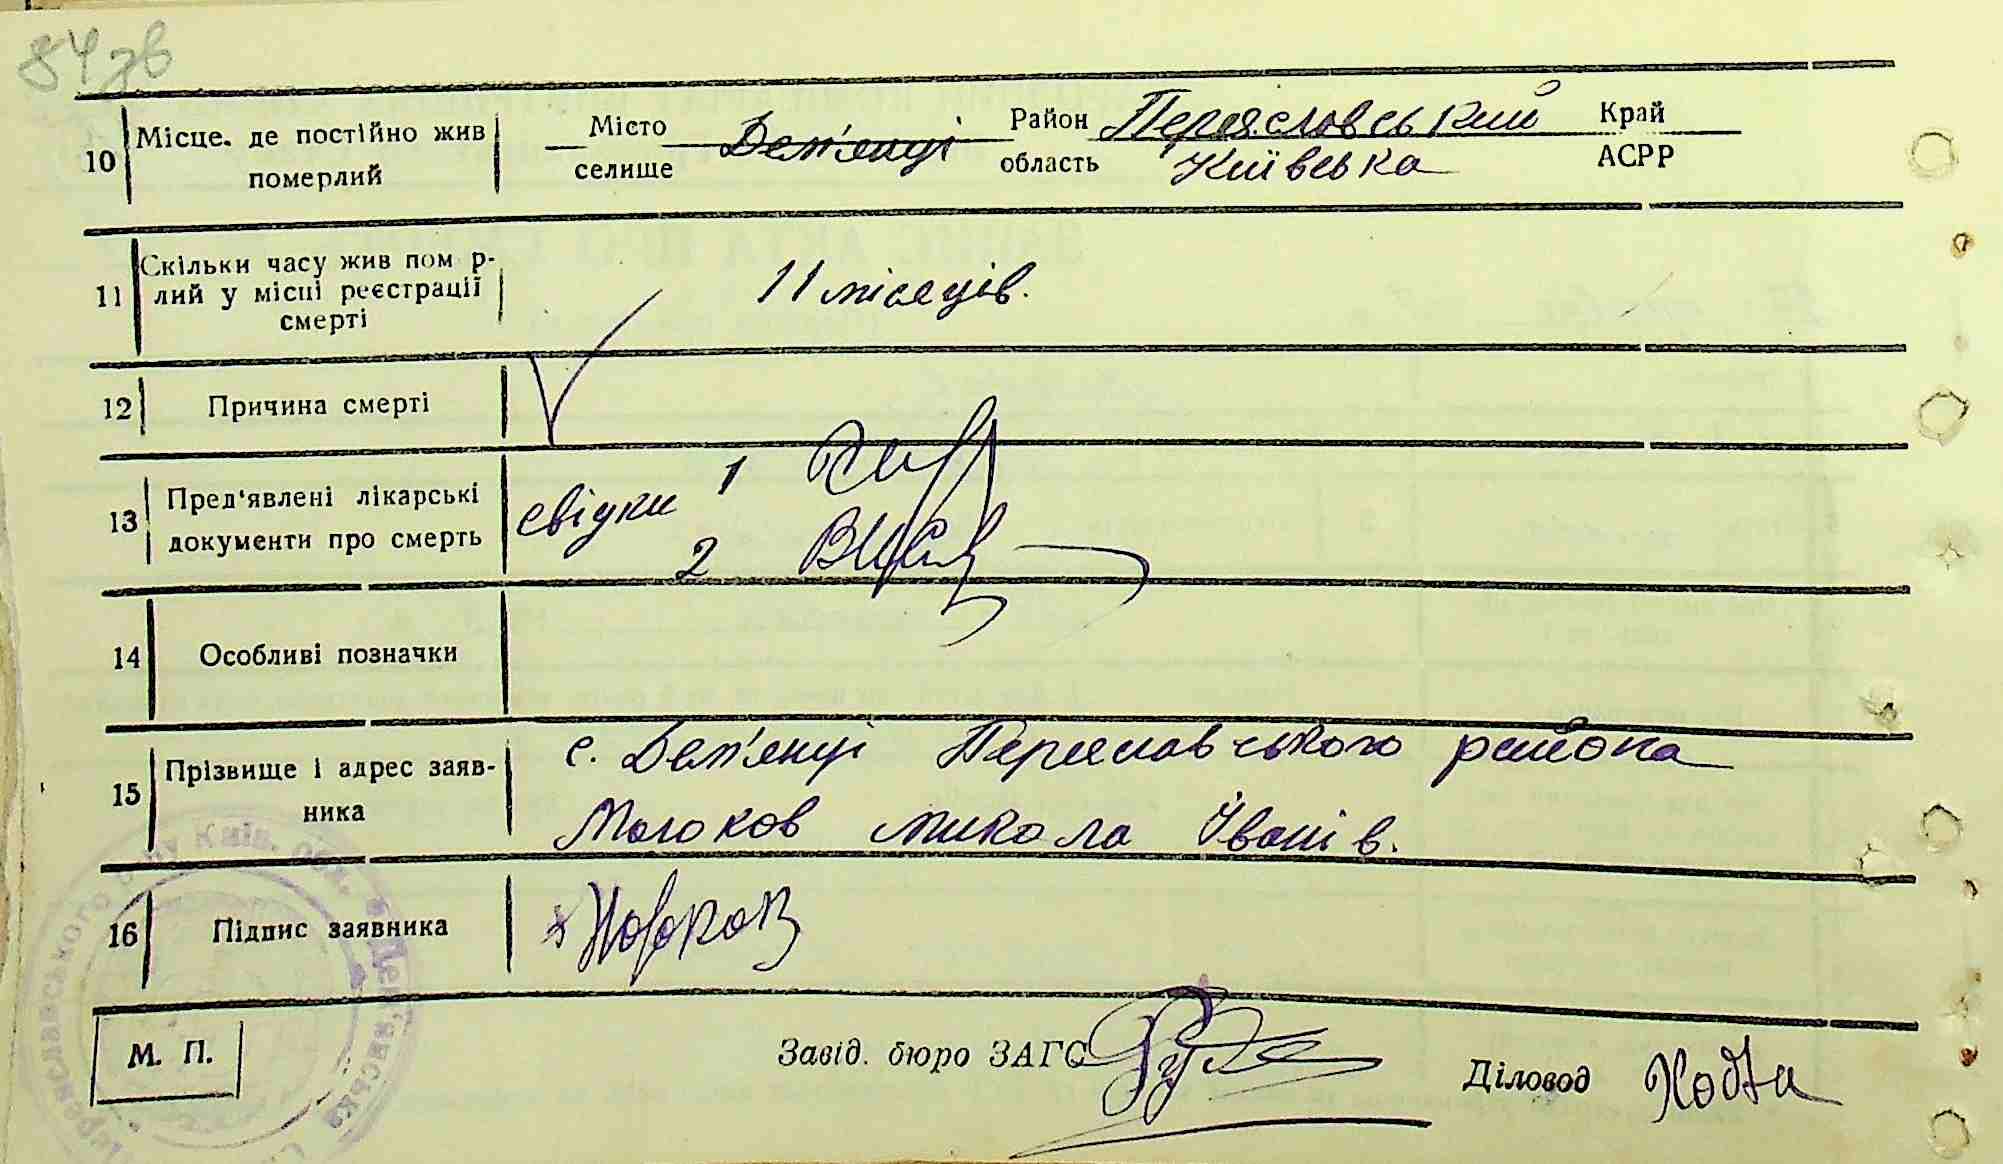 84 зв
10 Місце. де постійно жив померлий
Місто селище Дем'янці Район Переяславський область Київська Край АСРР
11 Скільки часу жив пом р-
лий у місці реєстрації
смерті
11 місяців.
12 Причина смерті
13 Пред'явлені лікарські
документи про смерть
свідки 1
2
14 Особливі позначки
15 Прізвище і адрес заяв-
ника
с. Дем'янці Переяславського района
Микола Іванів.
16 Підпис заявника
М. П.
Завід. бюро ЗАГС
Діловод